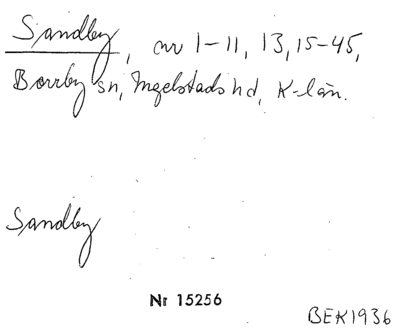 Sandby, av 1-11, 13, 15-45,
Borrby sn, Ingelstads hd, K-län.
Sandby
Nr 15256
BEK1936